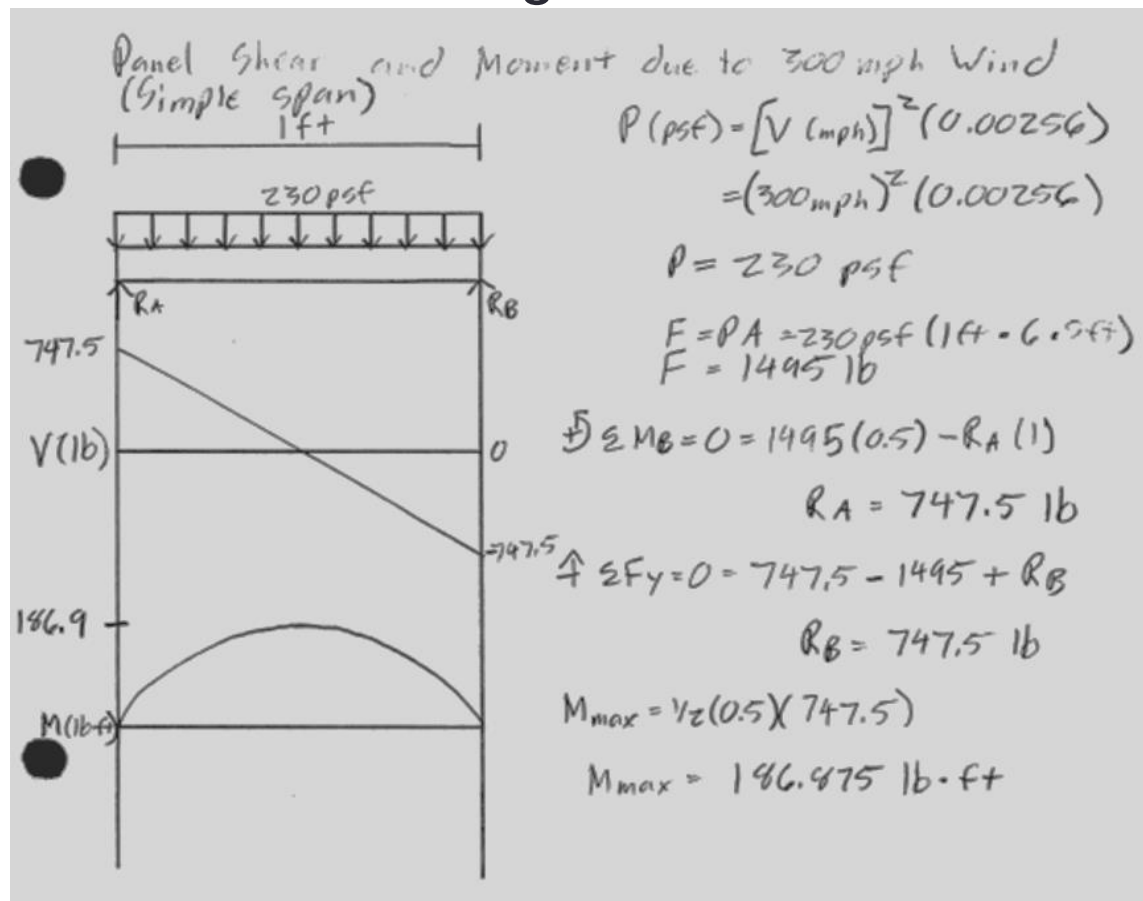 Panel Shear and Moment due to 300 mph Wind
(Simple span)
1 ft
230 psf
RA
RB
747.5
V(lb)
0
-747.5
186.9
M(lb·ft)
P (psf) = [V (mph)]² (0.00256)
= (300mph)² (0.00256)
P = 230 psf
F = PA = 230psf (1ft · 6.5ft)
F = 1495 lb
+↺ ΣMB = 0 = 1495(0.5) - RA (1)
RA = 747.5 lb
+↑ ΣFy = 0 = 747.5 - 1495 + RB
RB = 747.5 lb
Mmax = 1/2(0.5)(747.5)
Mmax = 186.875 lb·ft